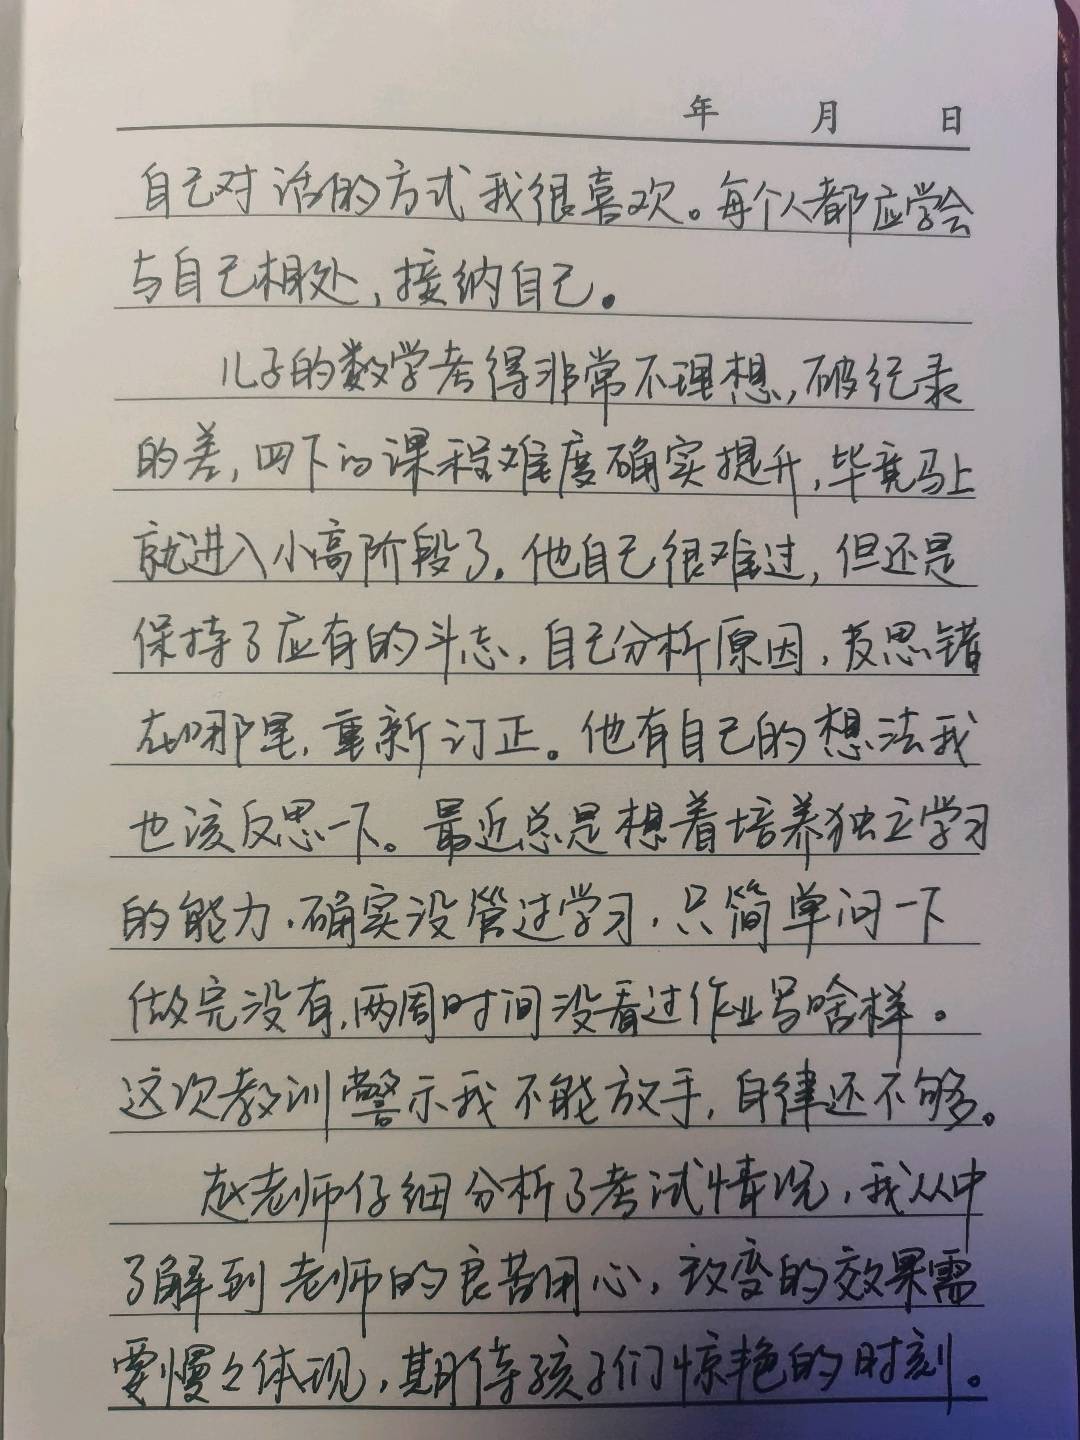 年 月 日
自己对话的方式我很喜欢。每个人都应学会
与自己相处,接纳自己。
儿子的数学考得非常不理想,破纪录
的差,四下的课程难度确实提升,毕竟马上
就进入小高阶段了。他自己很难过,但还是
保持了应有的斗志,自己分析原因,反思错
在哪里,重新订正。他有自己的想法我
也该反思一下。最近总是想着培养独立学习
的能力,确实没管过学习,只简单问一下
做完没有,两周时间没看过作业写啥样。
这次教训警示我不能放手,自律还不够。
赵老师仔细分析了考试情况,我从中
了解到老师的良苦用心,改变的效果需
要慢々体现,期待孩子们惊艳的时刻。